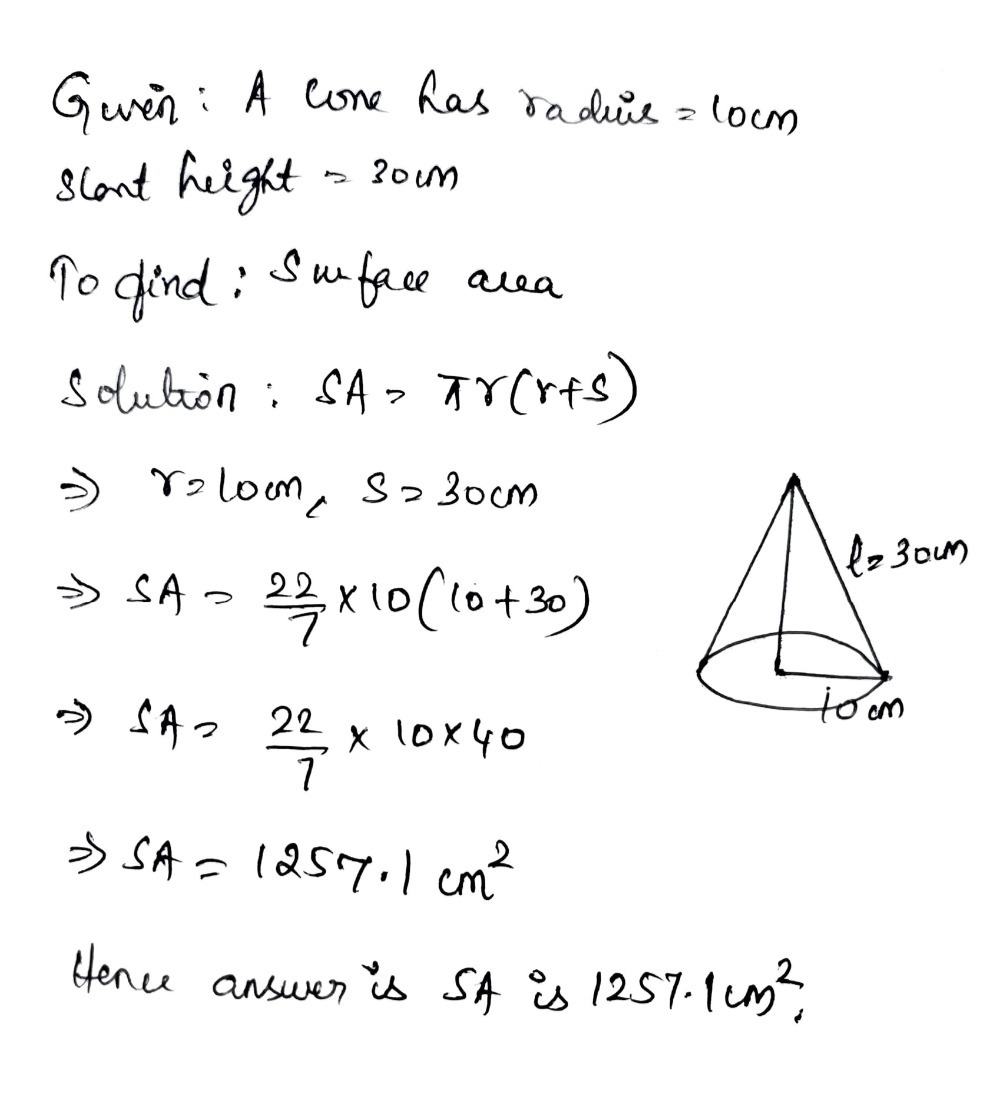 Given : A Cone has radius = 10cm
Slant height = 30cm
To find : Surface area
Solution : SA = πr(r+s)
⇒ r=10cm, S=30cm
⇒ SA = 22/7 × 10(10+30)
l=30cm
10cm
⇒ SA = 22/7 × 10×40
⇒ SA = 1257.1 cm²
Hence answer is SA is 1257.1cm².